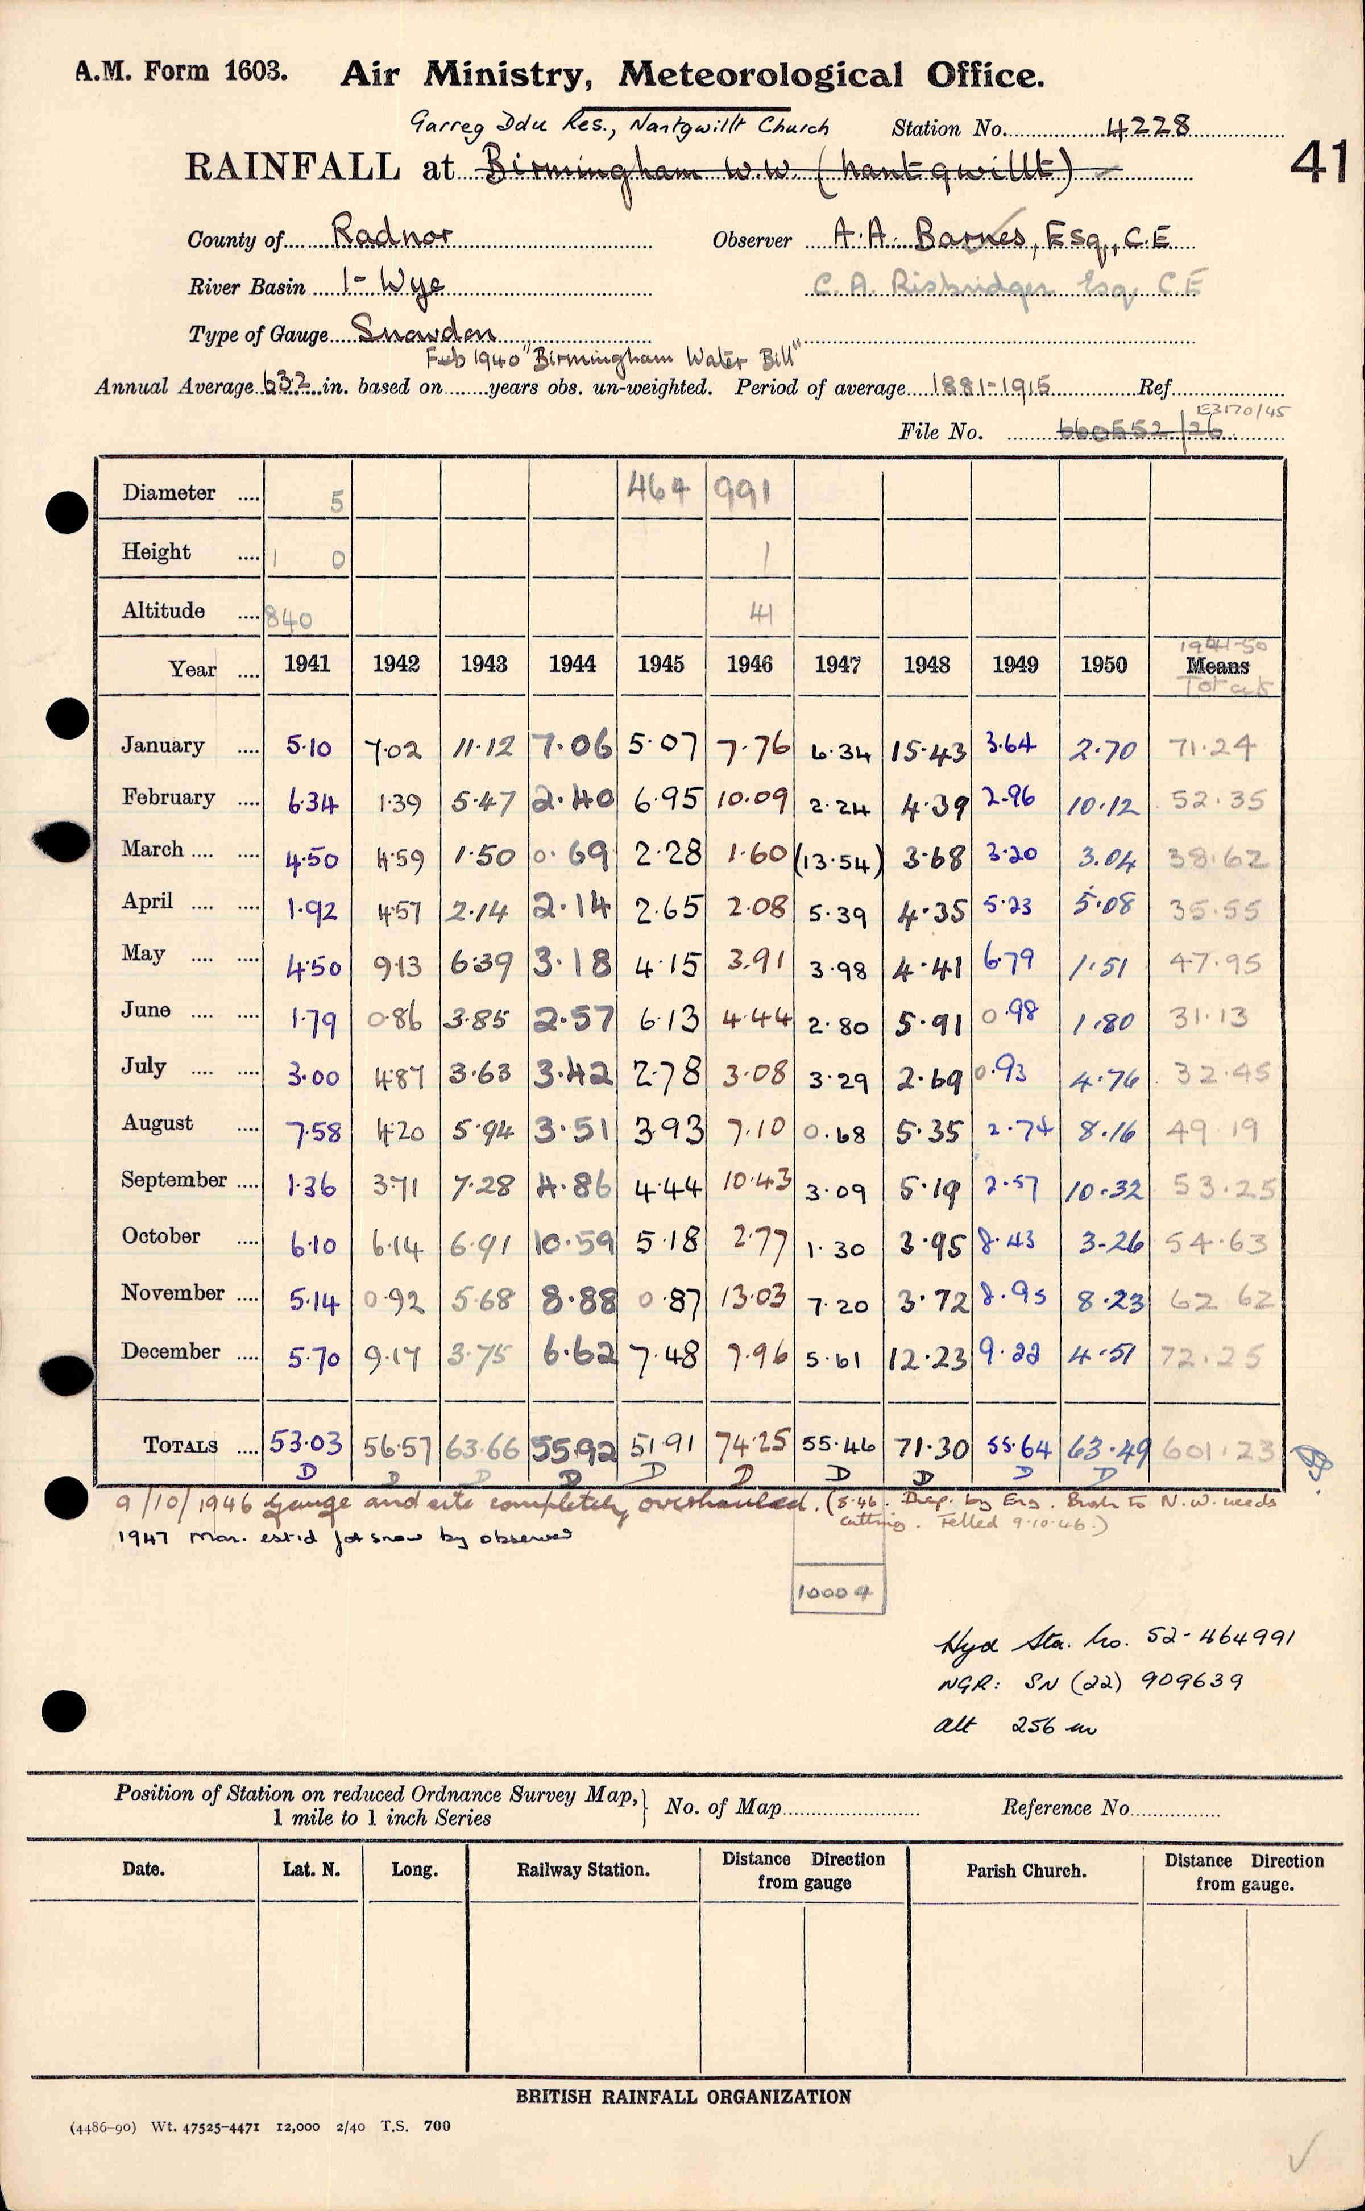 A.M. Form 1603. Air Ministry, Meteorological Office.
Garreg Ddu Res., Nantgwillt Church Station No. 4228
RAINFALL at Birmingham W.W. (Nantgwillt) 41
County of Radnor Observer A. A. Barnes, Esq., C.E
River Basin 1- Wye C. A. Risbridger Esq. C.E
Type of Gauge Snowdon
Feb 1940 "Birmingham Water Bill"
Annual Average 63.2 in. based on years obs. un-weighted. Period of average 1881-1915 Ref.
E3170/45
File No. 660552/26
Diameter .... 5 464 991
Height .... 1 0 1
Altitude .... 840 41
1941-50
Year .... 1941 1942 1943 1944 1945 1946 1947 1948 1949 1950 Means
Totals
January .... 5.10 7.02 11.12 7.06 5.07 7.76 6.34 15.43 3.64 2.70 71.24
February .... 6.34 1.39 5.47 2.40 6.95 10.09 2.24 4.39 2.96 10.12 52.35
March .... .... 4.50 4.59 1.50 0.69 2.28 1.60 (13.54) 3.68 3.20 3.04 38.62
April .... .... 1.92 4.57 2.14 2.14 2.65 2.08 5.39 4.35 5.23 5.08 35.55
May .... .... 4.50 9.13 6.39 3.18 4.15 3.91 3.98 4.41 6.79 1.51 47.95
June .... .... 1.79 0.86 3.85 2.57 6.13 4.44 2.80 5.91 0.98 1.80 31.13
July .... .... 3.00 4.87 3.63 3.42 2.78 3.08 3.29 2.69 0.93 4.76 32.45
August .... 7.58 4.20 5.94 3.51 3.93 7.10 0.68 5.35 2.74 8.16 49.19
September .... 1.36 3.71 7.28 4.86 4.44 10.43 3.09 5.19 2.57 10.32 53.25
October .... 6.10 6.14 6.91 10.59 5.18 2.77 1.30 3.95 8.43 3.26 54.63
November .... 5.14 0.92 5.68 8.88 0.87 13.03 7.20 3.72 8.95 8.23 62.62
December .... 5.70 9.17 3.75 6.62 7.48 7.96 5.61 12.23 9.22 4.51 72.25
TOTALS .... 53.03 56.57 63.66 55.92 51.91 74.25 55.46 71.30 55.64 63.49 601.23
D D D D D D D D D D
9/10/1946 Gauge and site completely overhauled. (8.46. Insp. by Eng. Bush to N.W. needs
cutting. Felled 9.10.46.)
1947 Mar. est'd for snow by observer
10004
Hyd Sta. No. 52-464991
NGR: SN (22) 909639
alt 256 m
Position of Station on reduced Ordnance Survey Map, } No. of Map Reference No.
1 mile to 1 inch Series
Date. Lat. N. Long. Railway Station. Distance Direction from gauge Parish Church. Distance Direction from gauge.
BRITISH RAINFALL ORGANIZATION
(4486-90) Wt. 47525-4471 12,000 2/40 T.S. 700